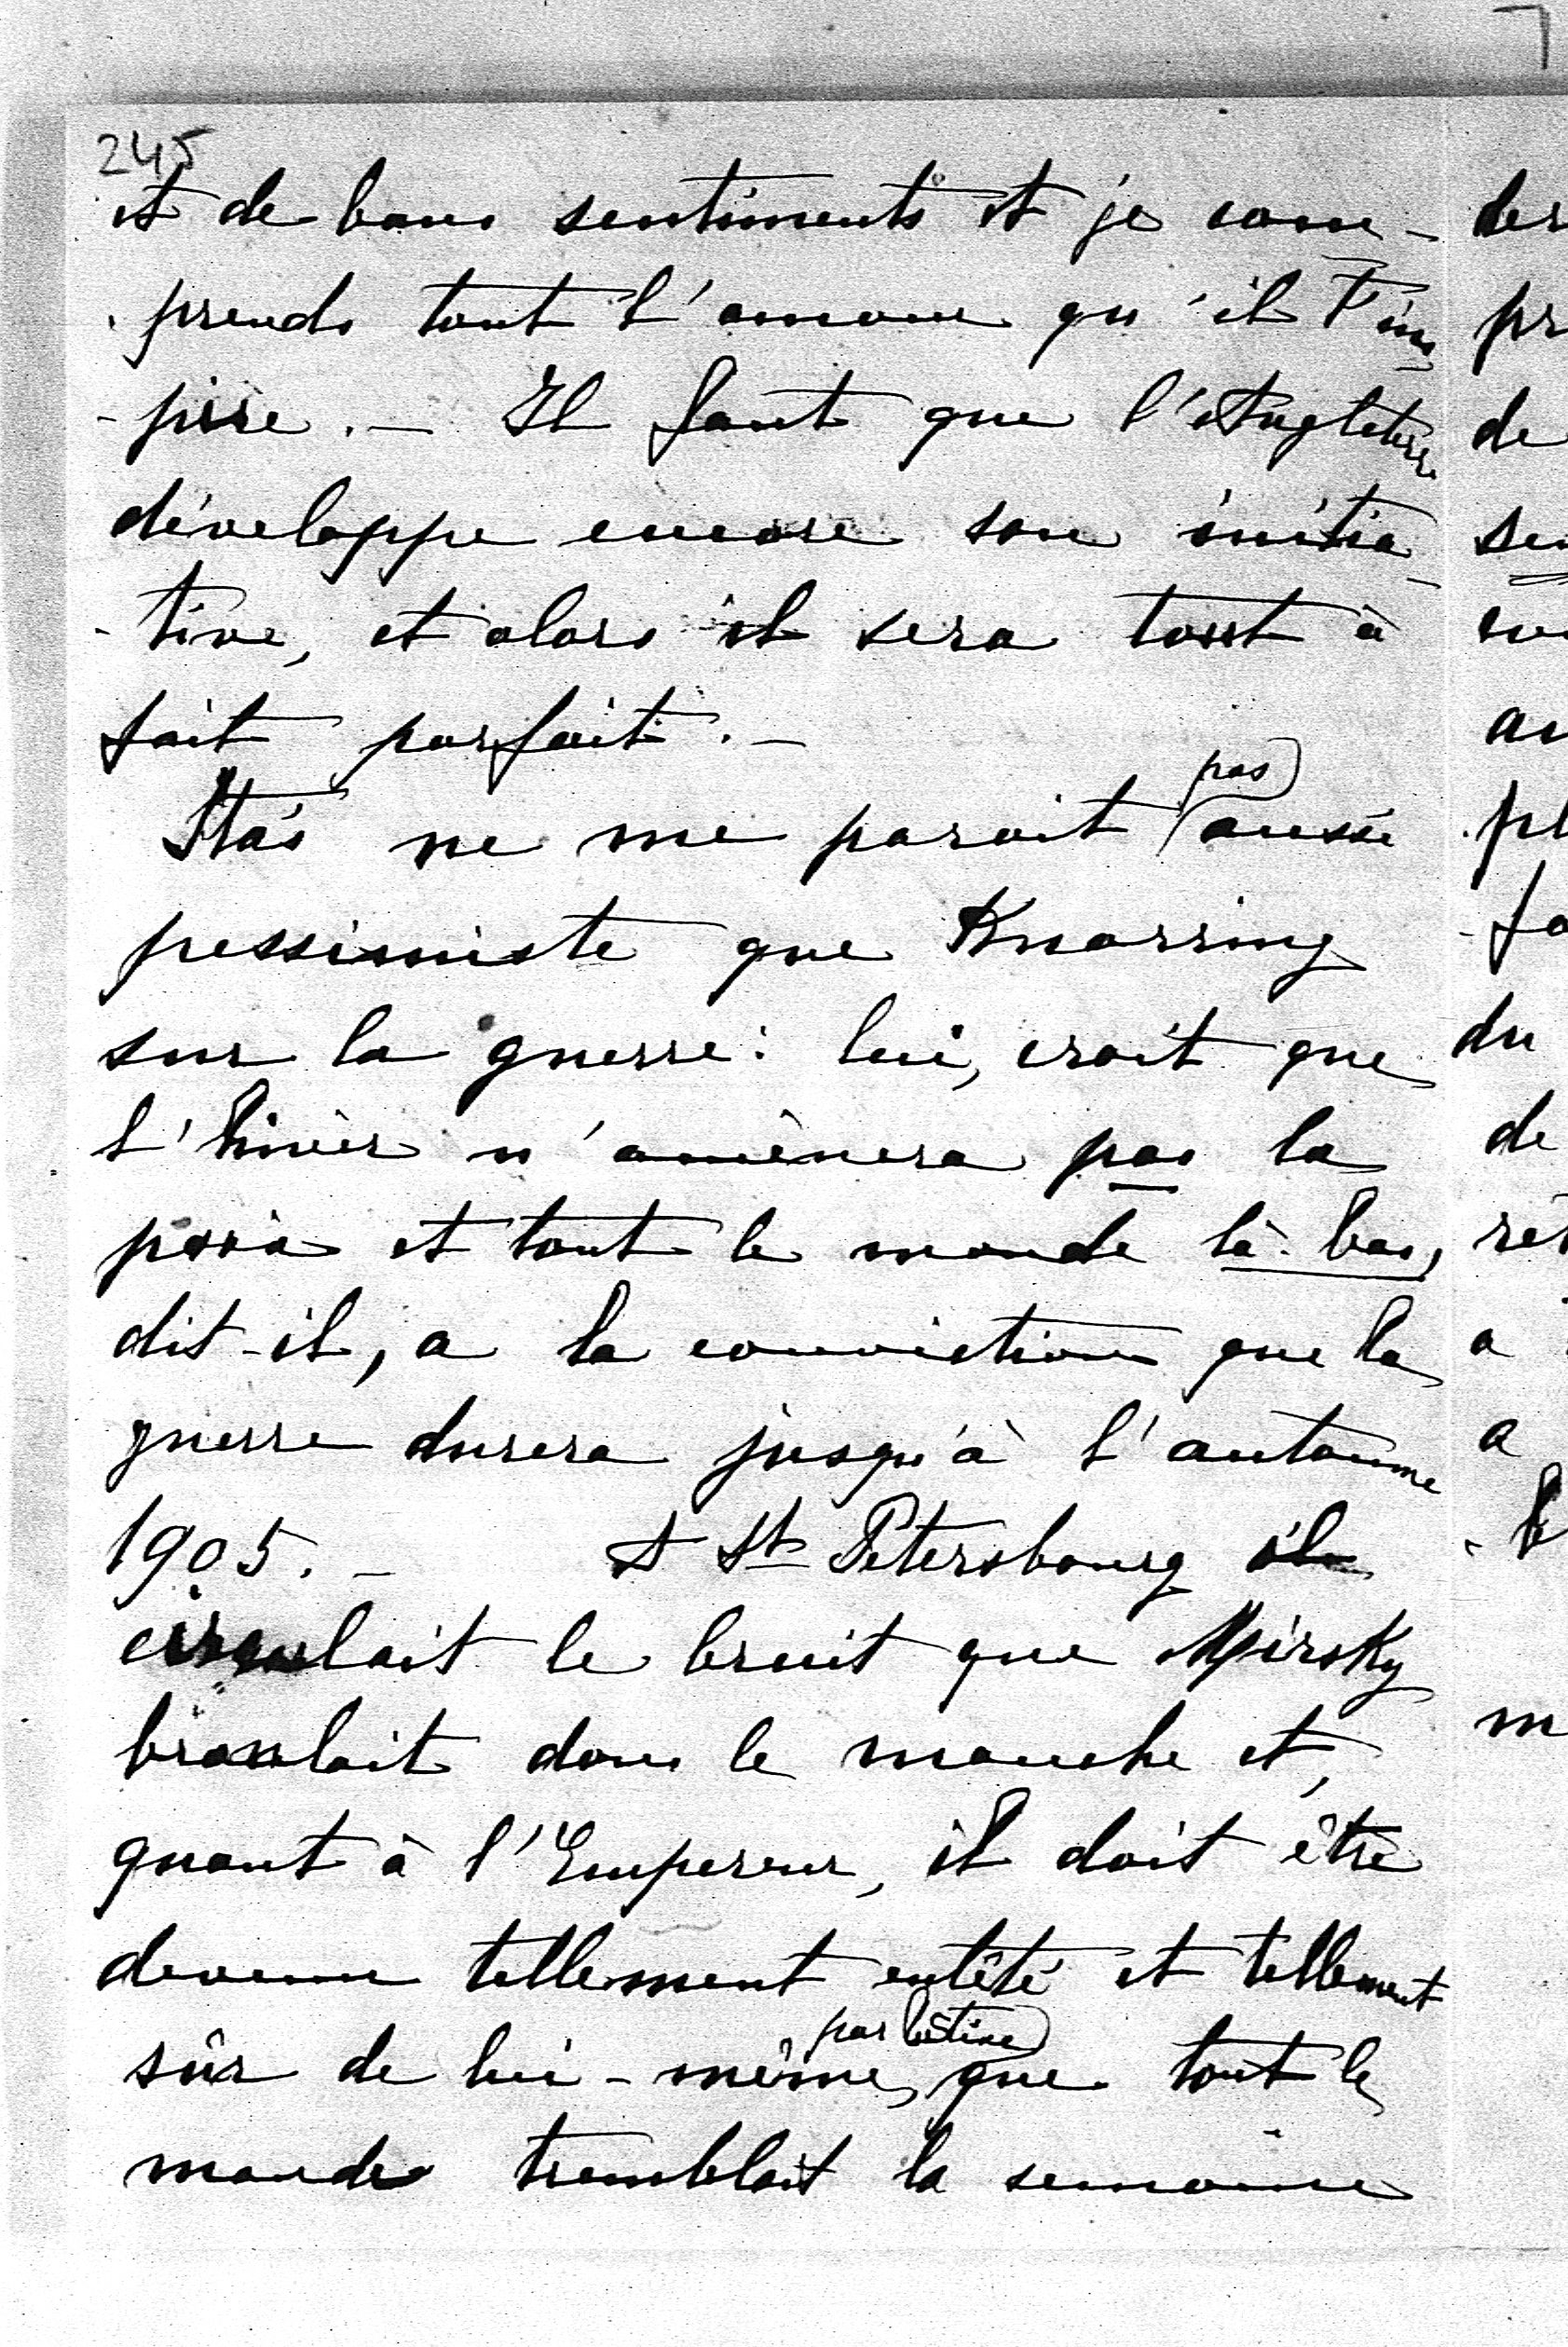 245
et de bons sentiments et je com-
prends tout l'amour qu'il t'ins
-pire. - Il faut que l'Angleterre
développe encore son initia-
-tive, et alors il sera tout à
fait parfait. -
Stas ne me parait pas aussi
pessimiste que Knorring
sur la guerre: lui, croit que
l'hiver n'amènera pas la
paix et tout le monde là-bas,
dit-il, a la conviction que la
guerre durera jusqu'à l'automne
1905. - A St Petersbourg il
circulait le bruit que Mirsky
branlait dans le manche et,
quant à l'Empereur, il doit être
devenu tellement entêté et tellement
sûr de lui-même, par bêtise que tout le
monde tremblait la semaine
der
pr
de
co
au
pl
-fo
du
de
a
a
m